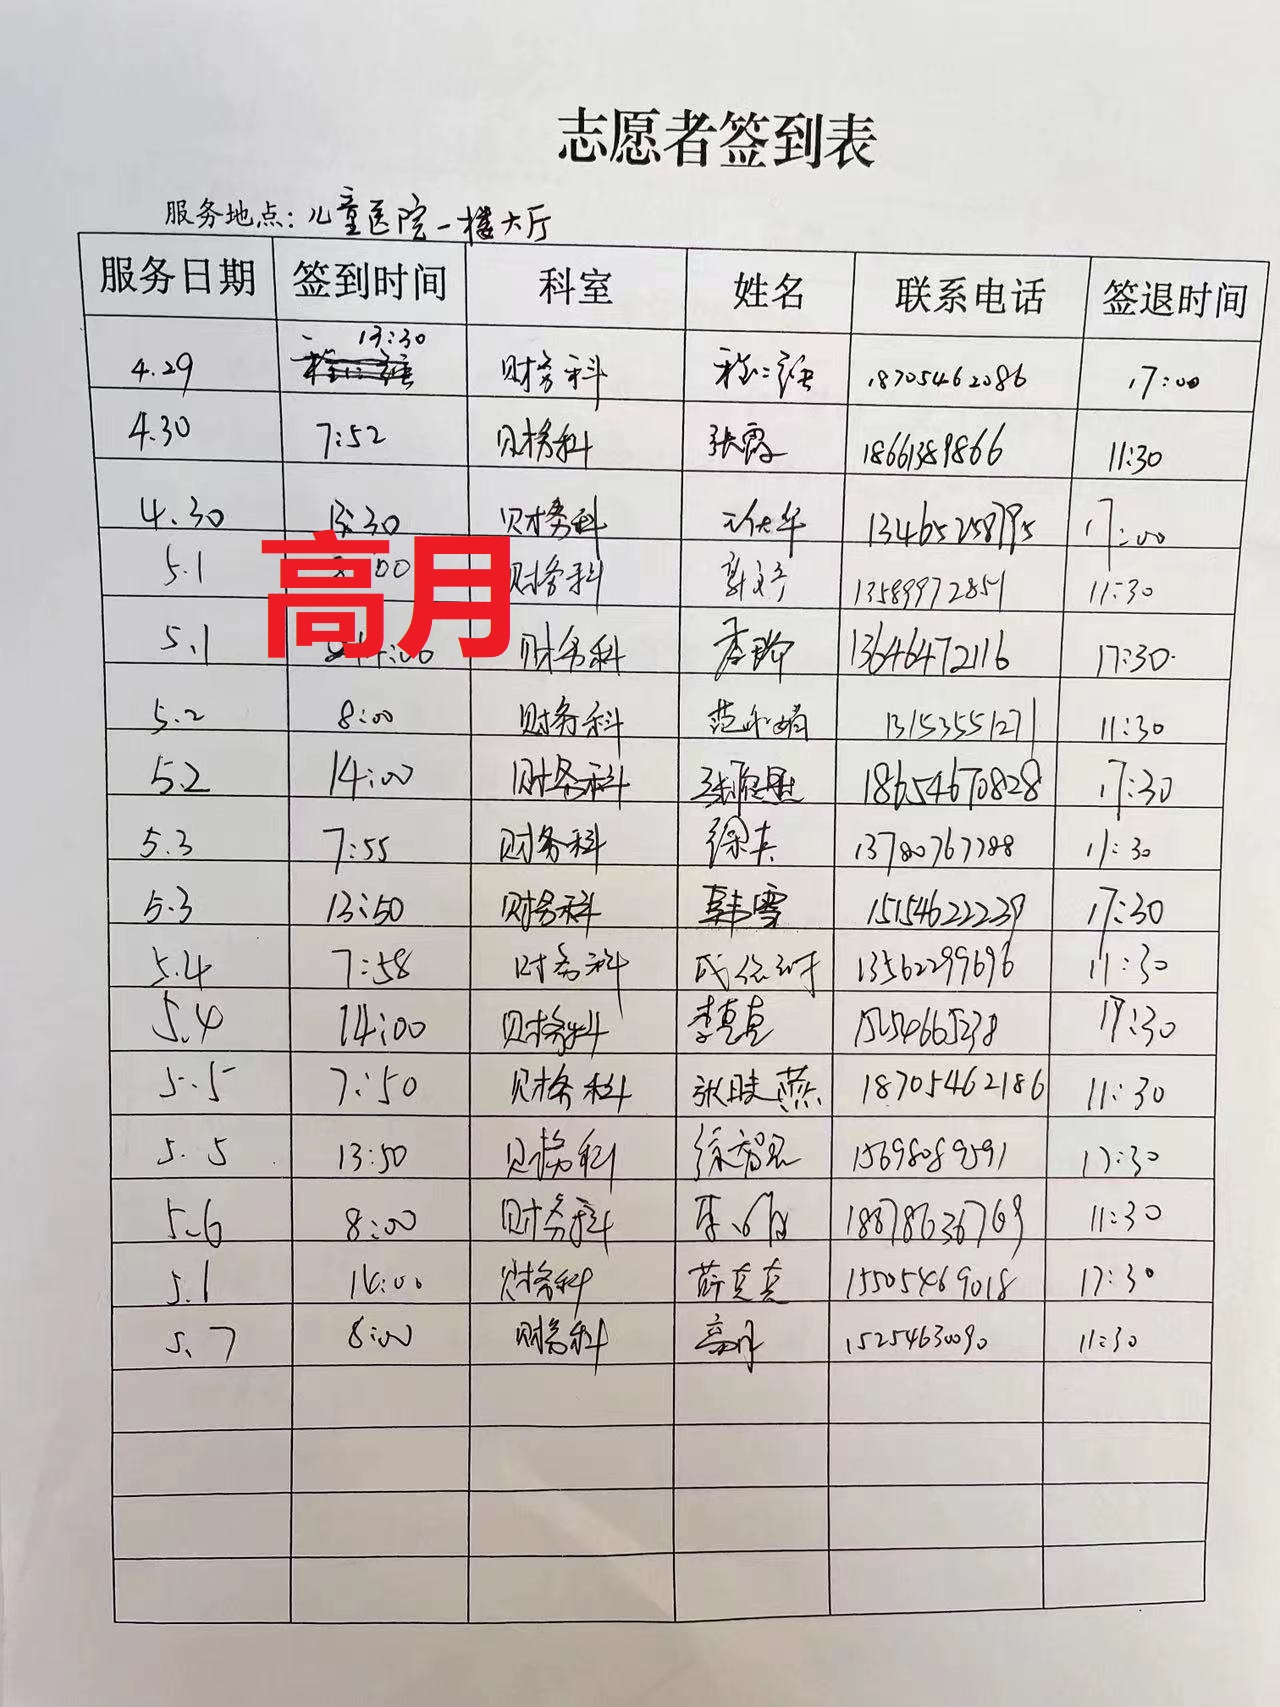 志愿者签到表
服务地点：儿童医院一楼大厅
服务日期 签到时间 科室 姓名 联系电话 签退时间
4.29 13:30 财务科 18705462086 17:00
4.30 7:52 财务科 张霞 18661389866 11:30
4.30 13:30 财务科 13465258795 17:00
5.1 :00 财务科 13589972851 11:30
高月
5.1 14:00 财务科 13646472116 17:30
5.2 8:00 财务科 13153551271 11:30
5.2 14:00 财务科 18654670828 17:30
5.3 7:55 财务科 13780767288 11:30
5.3 13:50 财务科 韩雪 15154622239 17:30
5.4 7:58 财务科 13562299696 11:30
5.4 14:00 财务科 李真真 15254665238 17:30
5.5 7:50 财务科 18705462186 11:30
5.5 13:50 财务科 15698089591 17:30
5.6 8:00 财务科 18878636769 11:30
5.1 14:00 财务科 薛真真 15505469018 17:30
5.7 8:00 财务科 高月 15254630090 11:30